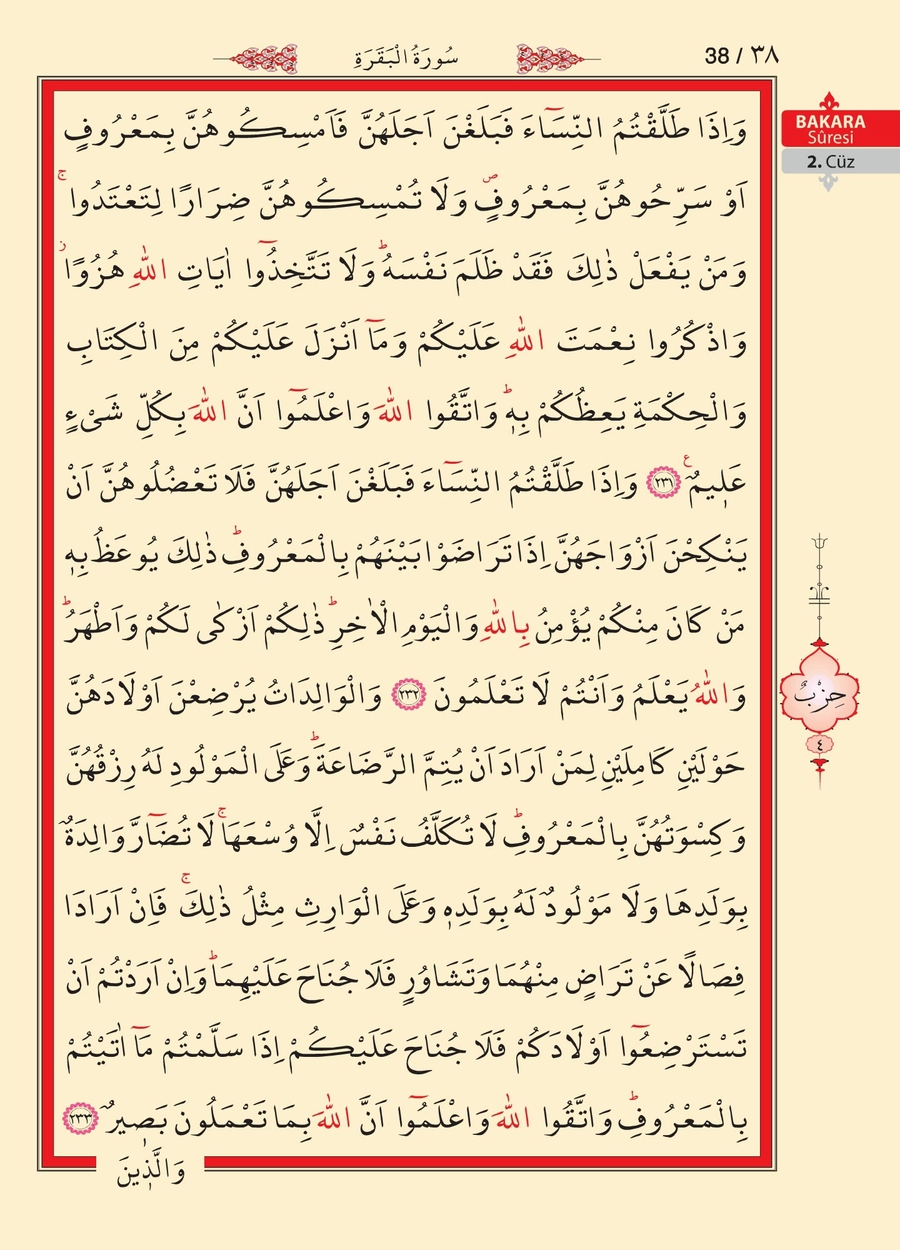 سُورَةُ الْبَقَرَةِ
38 / ٣٨
BAKARA
Sûresi
2. Cüz
وَاِذَا طَلَّقْتُمُ النِّسَٓاءَ فَبَلَغْنَ اَجَلَهُنَّ فَاَمْسِكُوهُنَّ بِمَعْرُوفٍ
اَوْ سَرِّحُوهُنَّ بِمَعْرُوفٍۖ وَلَا تُمْسِكُوهُنَّ ضِرَارًا لِتَعْتَدُواۚ
وَمَنْ يَفْعَلْ ذٰلِكَ فَقَدْ ظَلَمَ نَفْسَهُۜ وَلَا تَتَّخِذُٓوا اٰيَاتِ اللّٰهِ هُزُوًاۘ
وَاذْكُرُوا نِعْمَتَ اللّٰهِ عَلَيْكُمْ وَمَٓا اَنْزَلَ عَلَيْكُمْ مِنَ الْكِتَابِ
وَالْحِكْمَةِ يَعِظُكُمْ بِه۪ۜ وَاتَّقُوا اللّٰهَ وَاعْلَمُٓوا اَنَّ اللّٰهَ بِكُلِّ شَىْءٍ
عَل۪يمٌ۟ ﴿٢٣١﴾ وَاِذَا طَلَّقْتُمُ النِّسَٓاءَ فَبَلَغْنَ اَجَلَهُنَّ فَلَا تَعْضُلُوهُنَّ اَنْ
يَنْكِحْنَ اَزْوَاجَهُنَّ اِذَا تَرَاضَوْا بَيْنَهُمْ بِالْمَعْرُوفِۜ ذٰلِكَ يُوعَظُ بِه۪
مَنْ كَانَ مِنْكُمْ يُؤْمِنُ بِاللّٰهِ وَالْيَوْمِ الْاٰخِرِۜ ذٰلِكُمْ اَزْكٰى لَكُمْ وَاَطْهَرُۜ
وَاللّٰهُ يَعْلَمُ وَاَنْتُمْ لَا تَعْلَمُونَ ﴿٢٣٢﴾ وَالْوَالِدَاتُ يُرْضِعْنَ اَوْلَادَهُنَّ
حَوْلَيْنِ كَامِلَيْنِ لِمَنْ اَرَادَ اَنْ يُتِمَّ الرَّضَاعَةَۜ وَعَلَى الْمَوْلُودِ لَهُ رِزْقُهُنَّ
وَكِسْوَتُهُنَّ بِالْمَعْرُوفِۜ لَا تُكَلَّفُ نَفْسٌ اِلَّا وُسْعَهَاۚ لَا تُضَٓارَّ وَالِدَةٌ
بِوَلَدِهَا وَلَا مَوْلُودٌ لَهُ بِوَلَدِه۪ وَعَلَى الْوَارِثِ مِثْلُ ذٰلِكَۚ فَاِنْ اَرَادَا
فِصَالًا عَنْ تَرَاضٍ مِنْهُمَا وَتَشَاوُرٍ فَلَا جُنَاحَ عَلَيْهِمَاۜ وَاِنْ اَرَدْتُمْ اَنْ
تَسْتَرْضِعُٓوا اَوْلَادَكُمْ فَلَا جُنَاحَ عَلَيْكُمْ اِذَا سَلَّمْتُمْ مَٓا اٰتَيْتُمْ
بِالْمَعْرُوفِۜ وَاتَّقُوا اللّٰهَ وَاعْلَمُٓوا اَنَّ اللّٰهَ بِمَا تَعْمَلُونَ بَص۪يرٌ ﴿٢٣٣﴾
وَالَّذ۪ينَ
حِزْبٌ
٤